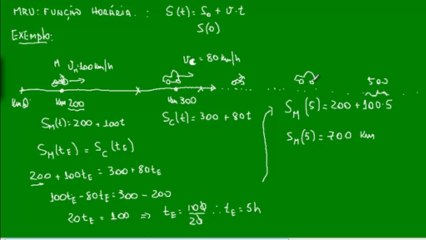 MRU: FUNÇÃO HORÁRIA.: S(t) = S₀ + v·t
S(0)
EXEMPLO:
M vₘ=100km/h v꜀=80km/h
km 0 km 200 km 300 500
Sₘ(t)=200+100t S꜀(t)=300+80t
Sₘ(t_E) = S꜀(t_E)
200+100t_E = 300+80t_E
100t_E-80t_E=300-200
20t_E = 100 ⇒ t_E = 100/20 ∴ t_E = 5h
Sₘ(5)=200+100·5
Sₘ(5)=700 km